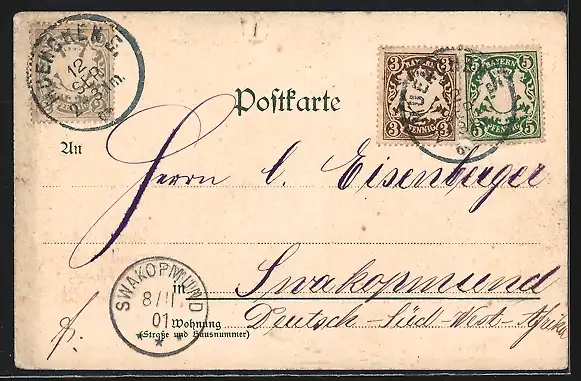 MUENCHEN
12
SEP
3 BAYERN 3
3 PFENNIG 3
5 BAYERN 5
5 PFENNIG 5
Postkarte
An
Herrn C. Eisenberger
in Swakopmund
SWAKOPMUND
8/11
01
* *
Wohnung
(Straße und Hausnummer)
Deutsch-Süd-West-Afrika
fr.